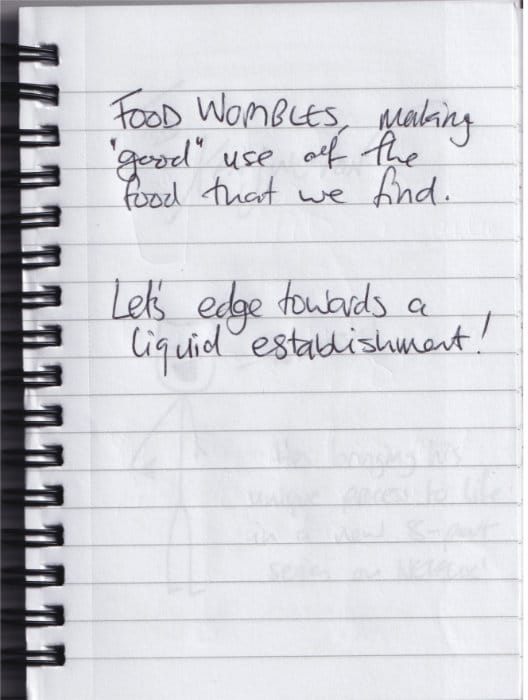 FOOD WOMBLES, making
"good" use of the
food that we find.
Let's edge towards a
liquid establishment!